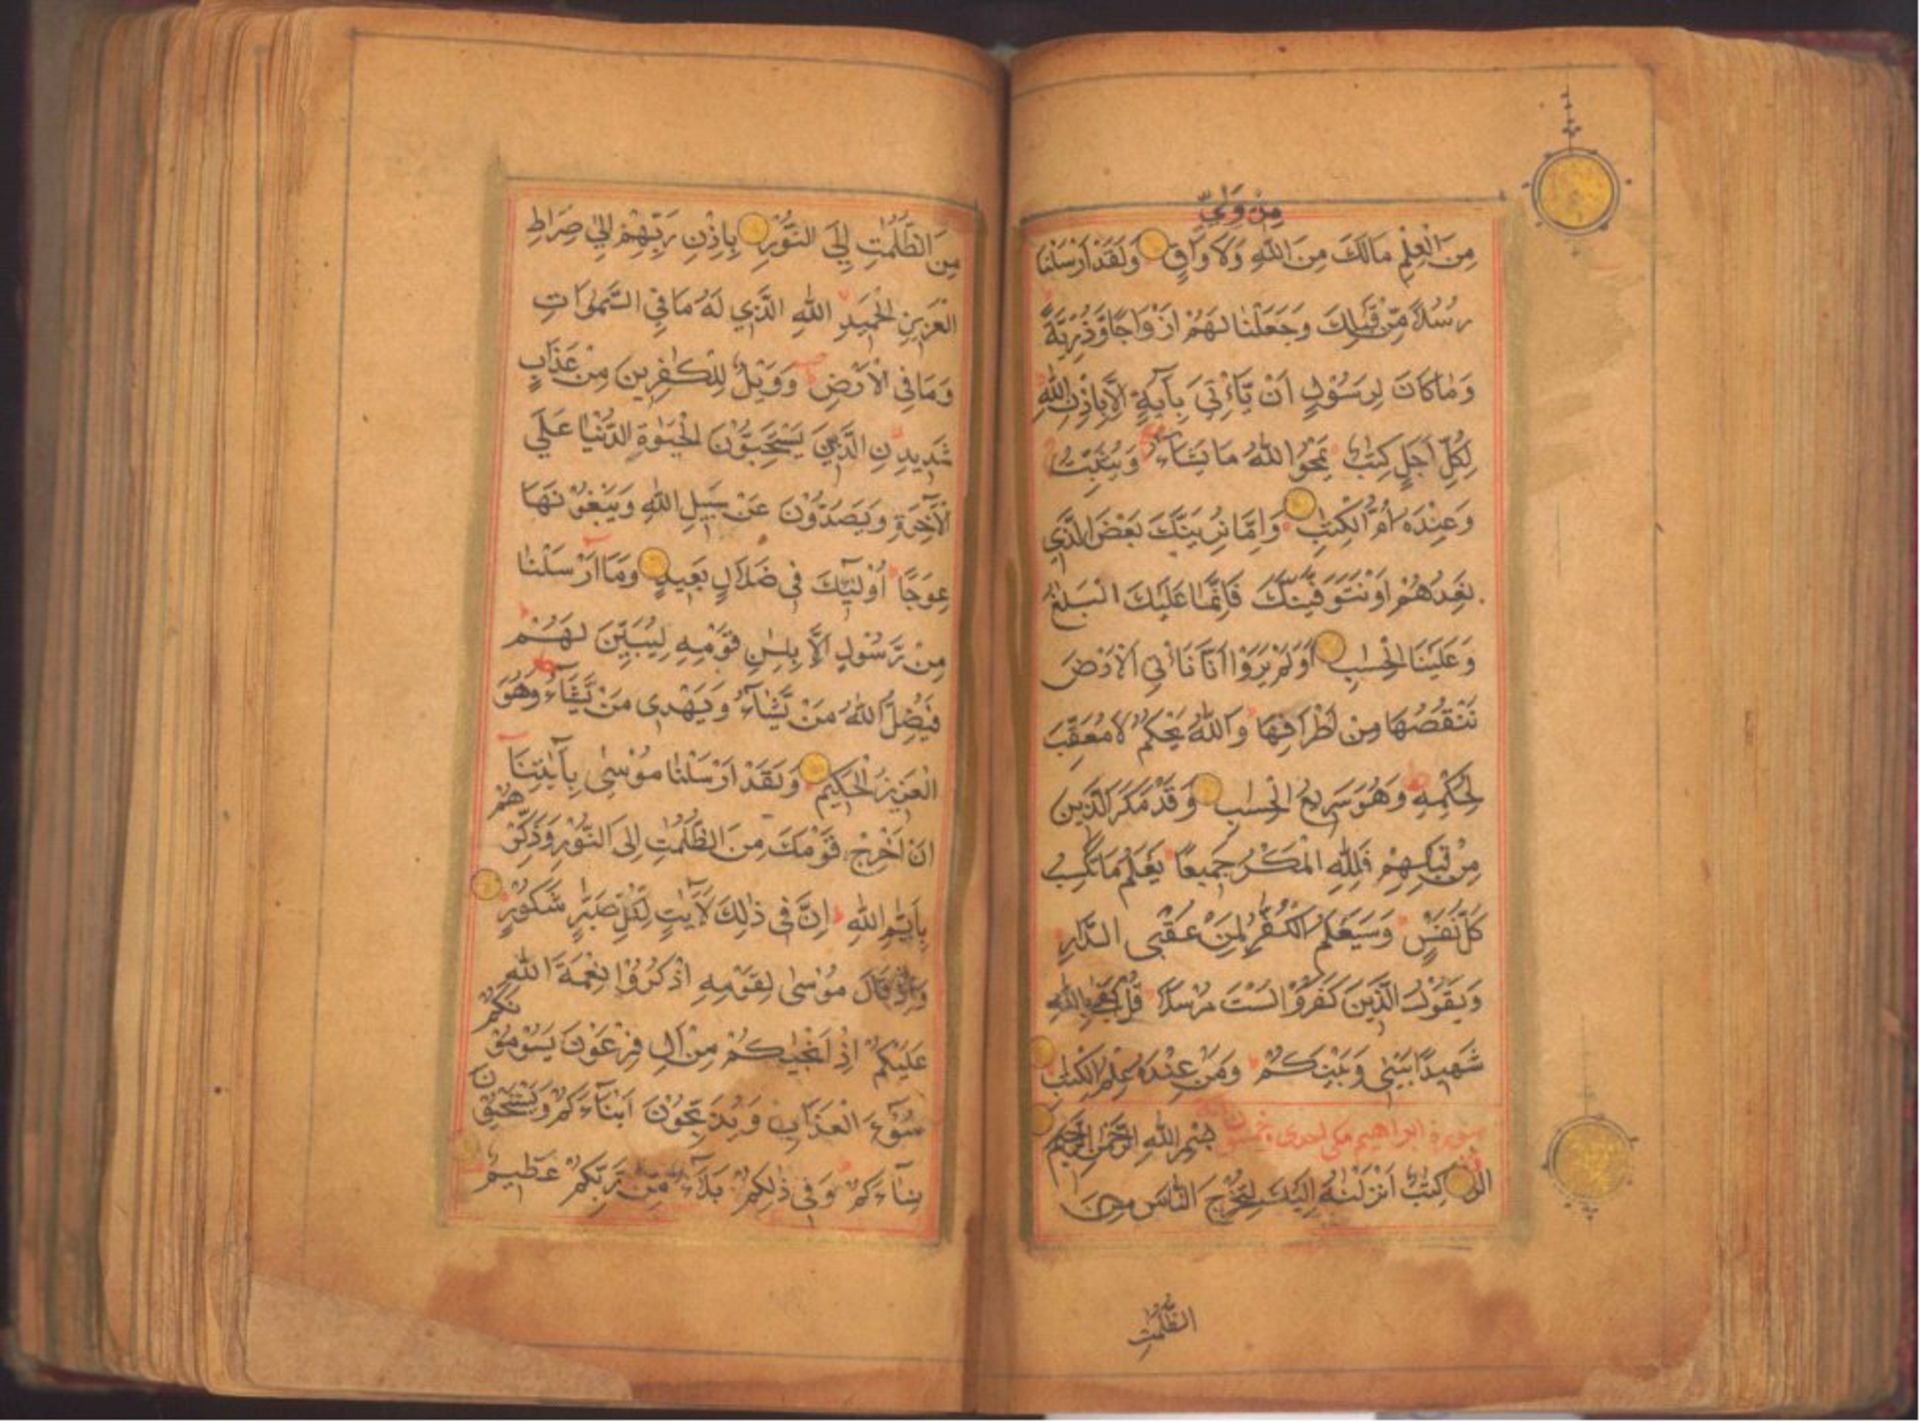 مِنْ وَلِيٍّ
مِنَ الْعِلْمِ مَالَكَ مِنَ اللّٰهِ وَلَا وَاقٍ وَلَقَدْ اَرْسَلْنَا
رُسُلًا مِّنْ قَبْلِكَ وَجَعَلْنَا لَهُمْ اَزْوَاجًا وَّذُرِّيَّةً
وَمَا كَانَ لِرَسُوْلٍ اَنْ يَّاْتِيَ بِاٰيَةٍ اِلَّا بِاِذْنِ اللّٰهِ
لِكُلِّ اَجَلٍ كِتٰبٌ يَمْحُوا اللّٰهُ مَا يَشَآءُ وَيُثْبِتُ
وَعِنْدَهُ اُمُّ الْكِتٰبِ وَاِمَّا نُرِيَنَّكَ بَعْضَ الَّذِي
نَعِدُهُمْ اَوْ نَتَوَفَّيَنَّكَ فَاِنَّمَا عَلَيْكَ الْبَلٰغُ
وَعَلَيْنَا الْحِسَابُ اَوَلَمْ يَرَوْا اَنَّا نَاْتِي الْاَرْضَ
نَنْقُصُهَا مِنْ اَطْرَافِهَا وَاللّٰهُ يَحْكُمُ لَا مُعَقِّبَ
لِحُكْمِهٖ وَهُوَ سَرِيعُ الْحِسَابِ وَقَدْ مَكَرَ الَّذِينَ
مِنْ قَبْلِهِمْ فَلِلّٰهِ الْمَكْرُ جَمِيعًا يَعْلَمُ مَا تَكْسِبُ
كُلُّ نَفْسٍ وَسَيَعْلَمُ الْكُفّٰرُ لِمَنْ عُقْبَى الدَّارِ
وَيَقُوْلُ الَّذِينَ كَفَرُوْا لَسْتَ مُرْسَلًا قُلْ كَفٰى بِاللّٰهِ
شَهِيدًا بَيْنِي وَبَيْنَكُمْ وَمَنْ عِنْدَهُ عِلْمُ الْكِتٰبِ
سورة ابراهيم مكى احدى وخمسون بِسْمِ اللّٰهِ الرَّحْمٰنِ الرَّحِيمِ
الٓرٰ كِتٰبٌ اَنْزَلْنٰهُ اِلَيْكَ لِتُخْرِجَ النَّاسَ مِنَ
الظُّلُمٰتِ
مِنَ الظُّلُمٰتِ اِلَى النُّوْرِ بِاِذْنِ رَبِّهِمْ اِلٰى صِرَاطِ
الْعَزِيزِ الْحَمِيدِ اللّٰهِ الَّذِي لَهُ مَا فِي السَّمٰوَاتِ
وَمَا فِي الْاَرْضِ وَوَيْلٌ لِّلْكٰفِرِينَ مِنْ عَذَابٍ
شَدِيدِنِ الَّذِينَ يَسْتَحِبُّوْنَ الْحَيٰوةَ الدُّنْيَا عَلَى
الْاٰخِرَةِ وَيَصُدُّوْنَ عَنْ سَبِيلِ اللّٰهِ وَيَبْغُوْنَهَا
عِوَجًا اُولٰٓئِكَ فِي ضَلَالٍ بَعِيدٍ وَمَا اَرْسَلْنَا
مِنْ رَّسُوْلٍ اِلَّا بِلِسَانِ قَوْمِهٖ لِيُبَيِّنَ لَهُمْ
فَيُضِلُّ اللّٰهُ مَنْ يَّشَآءُ وَيَهْدِى مَنْ يَّشَآءُ وَهُوَ
الْعَزِيزُ الْحَكِيمُ وَلَقَدْ اَرْسَلْنَا مُوْسٰى بِاٰيٰتِنَا
اَنْ اَخْرِجْ قَوْمَكَ مِنَ الظُّلُمٰتِ اِلَى النُّوْرِ وَذَكِّرْهُمْ
بِاَيّٰمِ اللّٰهِ اِنَّ فِي ذٰلِكَ لَاٰيٰتٍ لِّكُلِّ صَبَّارٍ شَكُوْرٍ
وَاِذْ قَالَ مُوْسٰى لِقَوْمِهِ اذْكُرُوْا نِعْمَةَ اللّٰهِ
عَلَيْكُمْ اِذْ اَنْجٰيكُمْ مِنْ اٰلِ فِرْعَوْنَ يَسُوْمُوْنَكُمْ
سُوْٓءَ الْعَذَابِ وَيُذَبِّحُوْنَ اَبْنَآءَكُمْ وَيَسْتَحْيُوْنَ
نِسَآءَكُمْ وَفِي ذٰلِكُمْ بَلَآءٌ مِّنْ رَّبِّكُمْ عَظِيمٌ